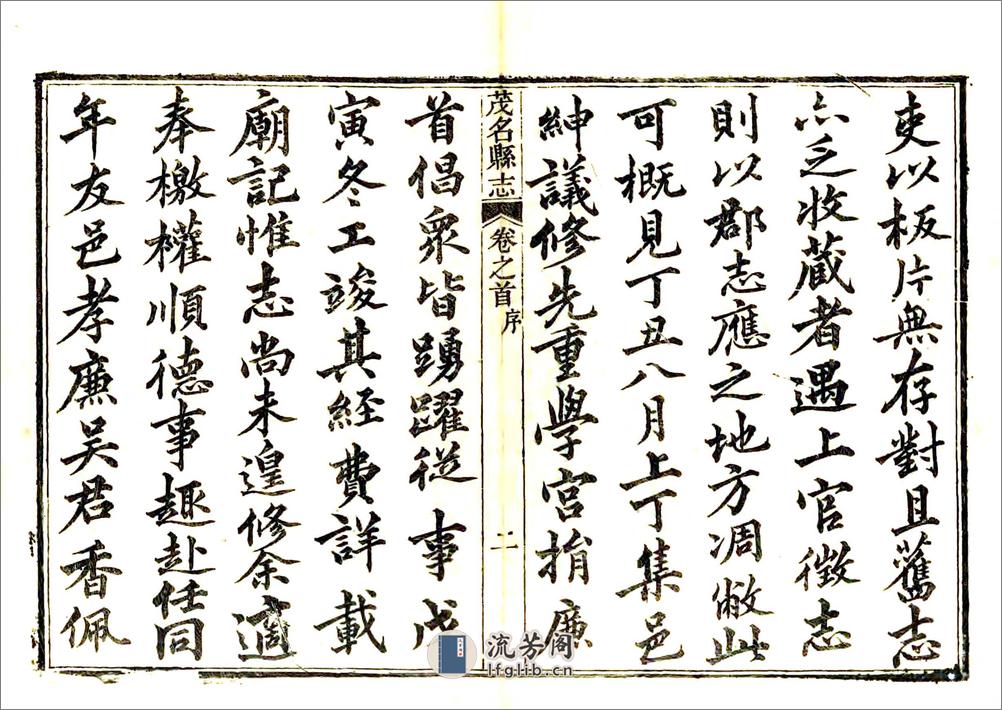 吏以板片無存對且舊志
亦乏收藏者遇上官徵志
則以郡志應之地方凋敝此
可概見丁丑八月上丁集邑
紳議修先重學宮捐廉
茂名縣志 卷之首 序 二
首倡眾皆踴躍從事戊
寅冬工竣其經費詳載
廟記惟志尚未遑修余適
奉檄權順德事趣赴任同
年友邑孝廉吳君香佩
流芳阁
lfglib.cn